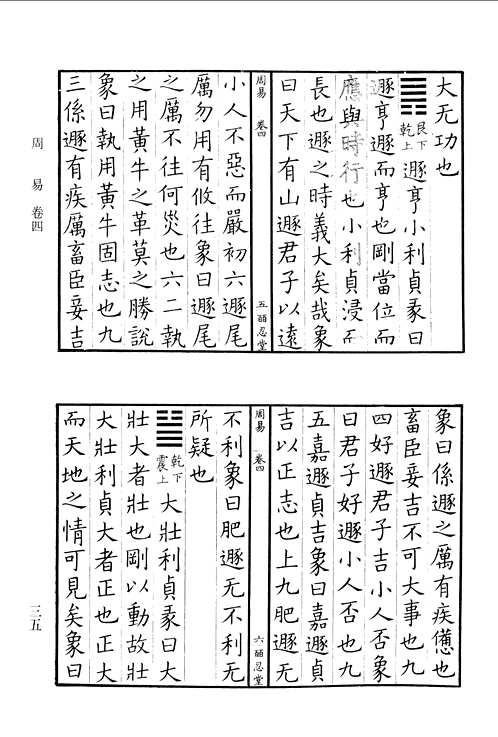 大无功也
䷠艮下乾上遯亨小利貞彖曰
遯亨遯而亨也剛當位而
應與時行也小利貞浸而
長也遯之時義大矣哉象
曰天下有山遯君子以遠
周易 卷四 五 皕忍堂
小人不惡而嚴初六遯尾
厲勿用有攸往象曰遯尾
之厲不往何災也六二執
之用黃牛之革莫之勝說
象曰執用黃牛固志也九
三係遯有疾厲畜臣妾吉
象曰係遯之厲有疾憊也
畜臣妾吉不可大事也九
四好遯君子吉小人否象
曰君子好遯小人否也九
五嘉遯貞吉象曰嘉遯貞
吉以正志也上九肥遯无
周易 卷四 六 皕忍堂
不利象曰肥遯无不利无
所疑也
䷡乾下震上大壯利貞彖曰大
壯大者壯也剛以動故壯
大壯利貞大者正也正大
而天地之情可見矣象曰
周易 卷四
三五